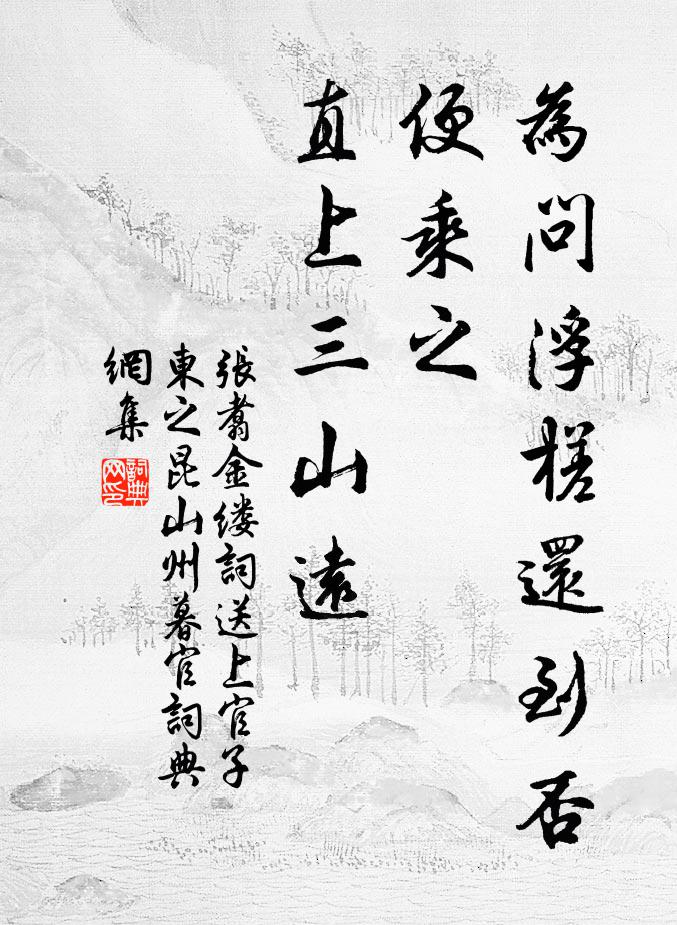 為問浮槎還到否
便乘之
直上三山遠
張翥金缕詞送上官子
東之昆山州暮官詞典
網集
詞典
网印